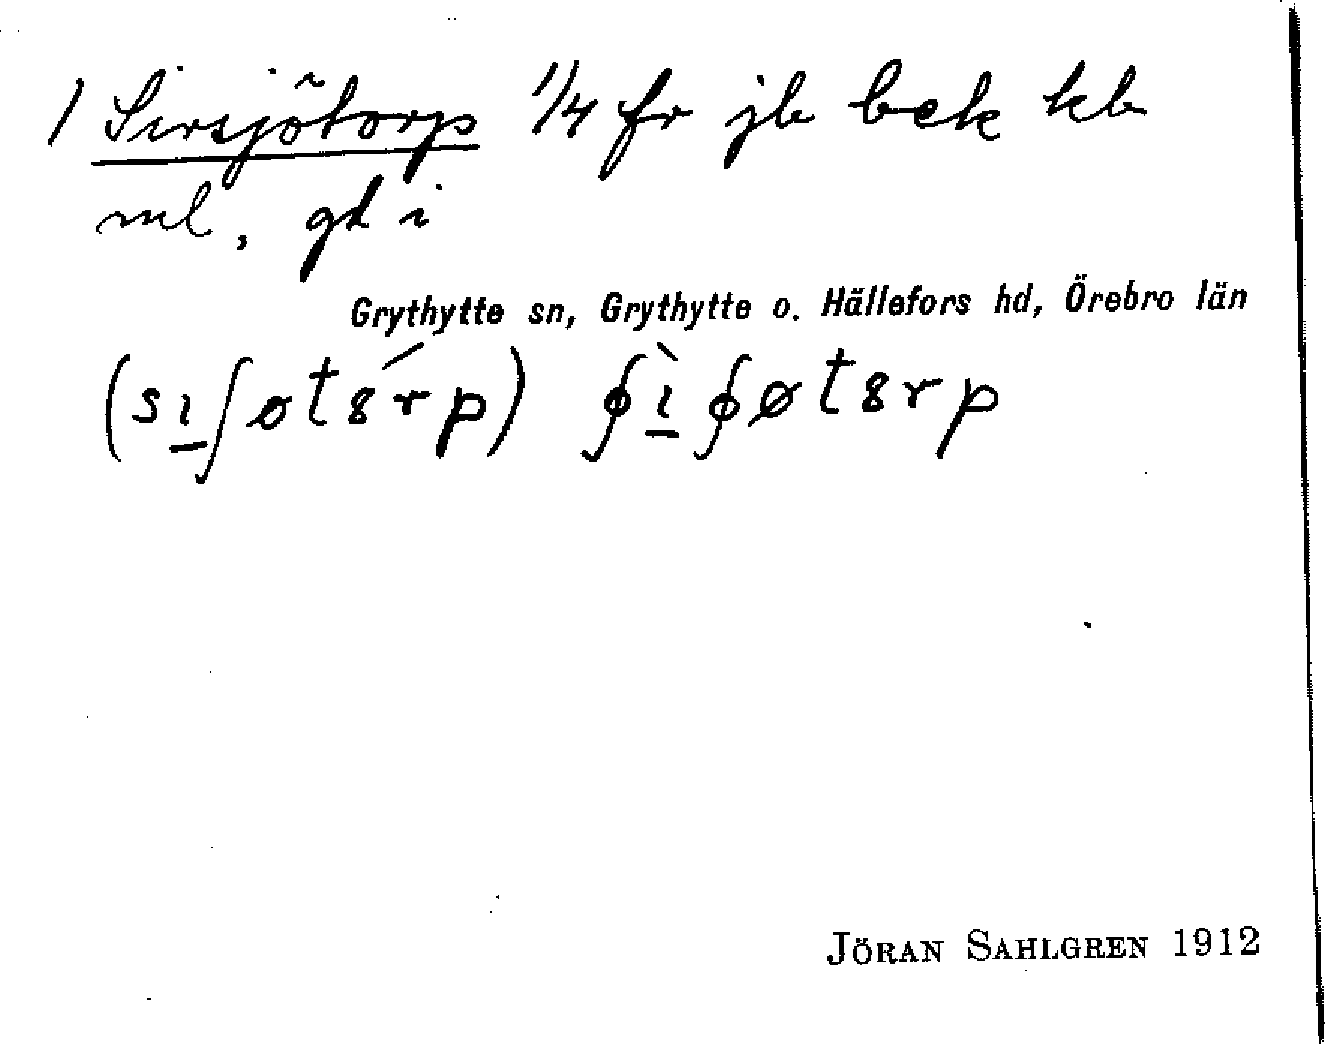 1 Sirsjötorp 1/4 fr jb bek kb
ml, gd i
Grythytte sn, Grythytte o. Hällefors hd, Örebro län
(sı̲ʃøtȣ́rp) ∮ı̲̀∮øtȣrp
JÖRAN SAHLGREN 1912